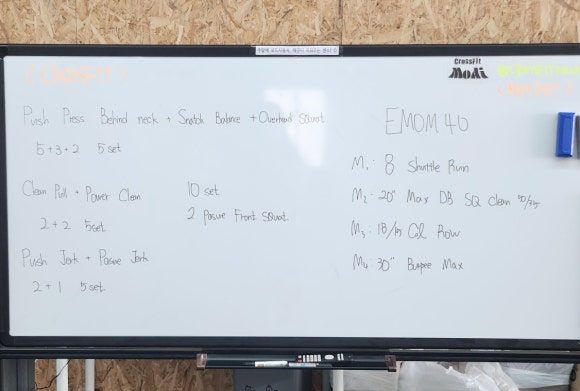 CROSSFIT
Push Press Behind neck + Snatch Balance + Overhead Squat
5+3+2 5set
Clean Pull + Power Clean
2+2 5set
Push Jerk + Pause Jerk
2+1 5set
10 set
2 Pause Front Squat
CrossFit
MoDi
EMOM 40
M1: 8 Shuttle Run
M2: 20" Max DB SQ clean
M3: 18/ Cal Row
M4: 30" Burpee Max